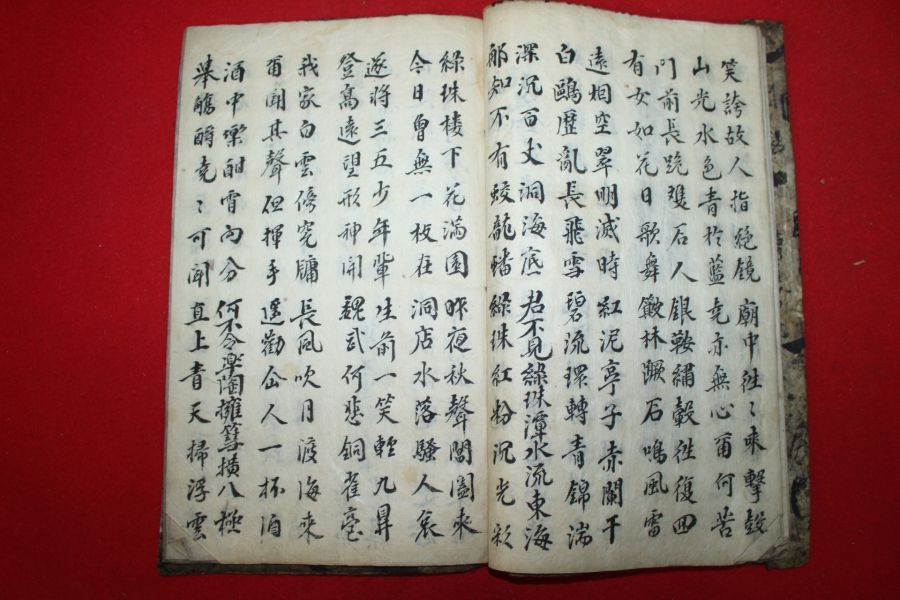 笑誇故人指絕鏡 廟中往〻來擊鼓
山光水色青於藍 堯亦無心爾何苦
門前長跪雙石人 銀鞍繡轂往復回
有女如花日歌舞 簸林蹶石鳴風雷
遠烟空翠明滅時 紅泥亭子赤闌干
白鷗歷亂長飛雪 碧流環轉青錦湍
深沉百丈洞海底 君不見綠珠潭水流東海
那知不有蛟龍蟠 綠珠紅粉沉光彩
綠珠樓下花滿園 昨夜秋聲閶闔來
今日曾無一枚在 洞店水落騷人哀
遂將三五少年輩 生前一笑輕九鼎
登高遠望形神開 魏武何悲銅雀臺
我家白雲傍窓牖 長風吹月渡海來
爾聞其聲但揮手 遙勸仚人一杯酒
酒中樂酣宵向分 何不令皋陶擁篲橫八極
舉觴酹堯〻可聞 直上青天掃浮雲